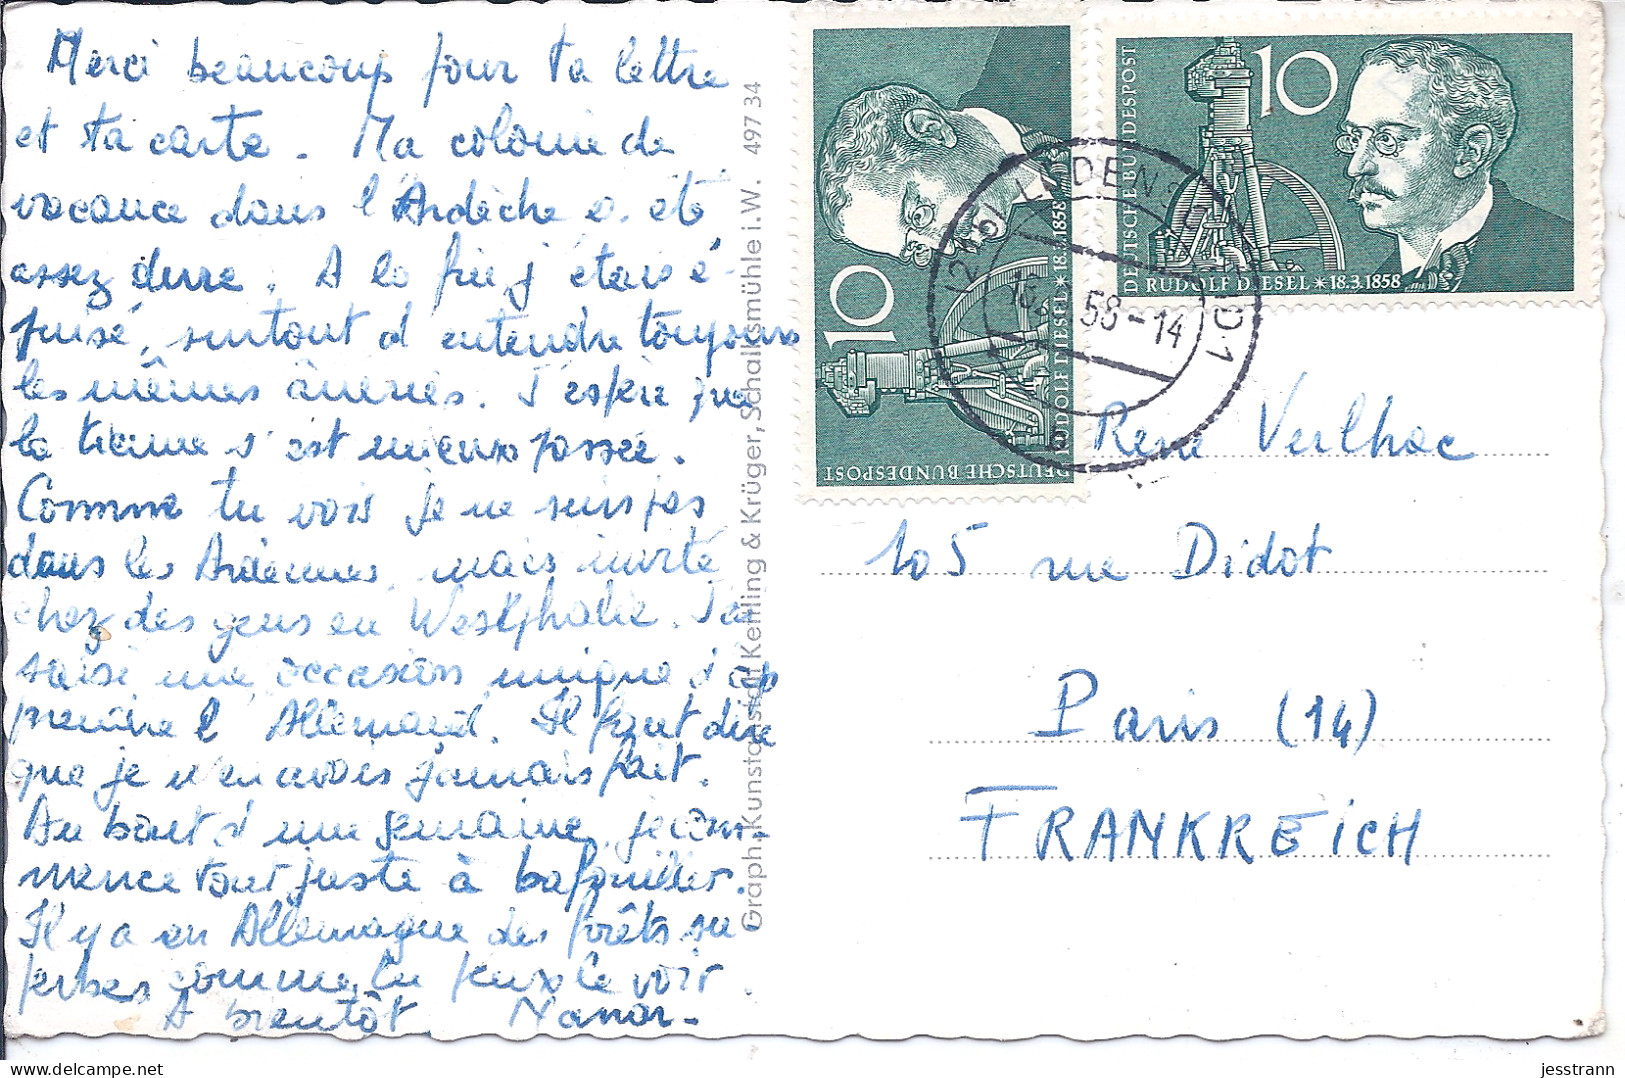 Merci beaucoup pour ta lettre
et ta carte. Ma colonie de
vacance dans l'Ardèche a été
assez dure. A la fin j'étais é-
puisé, surtout d'entendre toujours
les mêmes âneries. J'espère que
la tienne s'est mieux passée.
Comme tu vois je ne suis pas
dans les Ardennes, mais invité
chez des gens en Westphalie. J'ai
saisi une occasion unique d'ap
prendre l'Allemand. Il faut dire
que je n'en avais jamais fait.
Au bout d'une semaine, je com-
mence tout juste à bafouiller.
Il y a en Allemagne des forêts su
perbes comme tu peux le voir.
A bientôt
Graph. Kunstanstalt Kettling & Krüger, Schalksmühle i.W. 497 34
10
DEUTSCHE BUNDESPOST
RUDOLF DIESEL * 18.3.1858
10
DEUTSCHE BUNDESPOST
RUDOLF DIESEL * 18.3.1858
58-14
René Veilhac
105 rue Didot
Paris (14)
FRANKREICH
jesstrann